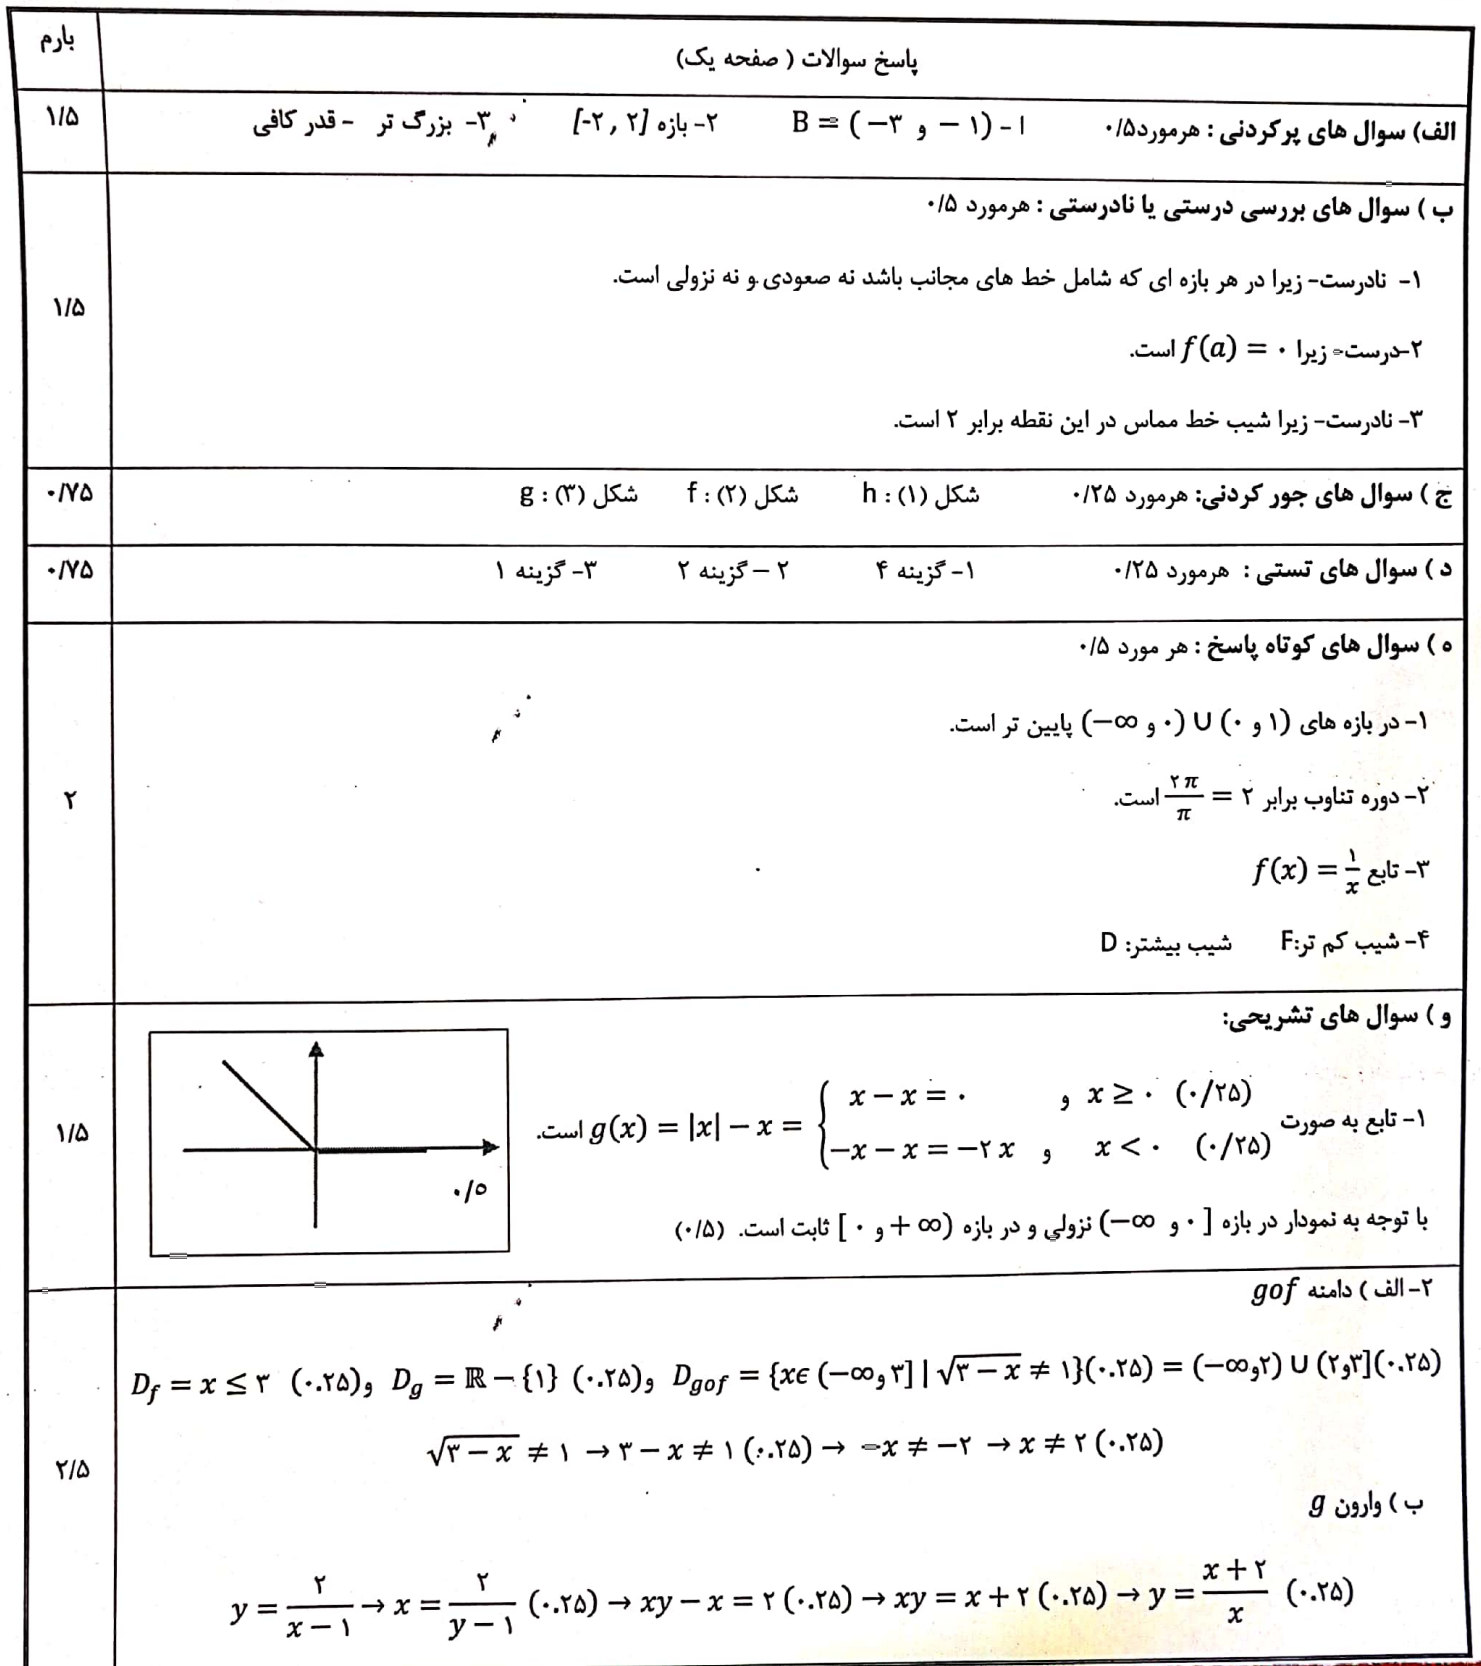 بارم
پاسخ سوالات ( صفحه یک)
۱/۵
الف) سوال های پرکردنی : هرمورد۰/۵ ۱- B = (−۳ و −۱) ۲- بازه [-۲ , ۲] ۳- بزرگ تر - قدر کافی
ب ) سوال های بررسی درستی یا نادرستی : هرمورد ۰/۵
۱- نادرست- زیرا در هر بازه ای که شامل خط های مجانب باشد نه صعودی و نه نزولی است.
۱/۵
۲-درست- زیرا f(a) = ۰ است.
۳- نادرست- زیرا شیب خط مماس در این نقطه برابر ۲ است.
۰/۷۵
ج ) سوال های جور کردنی: هرمورد ۰/۲۵ شکل (۱) : h شکل (۲) : f شکل (۳) : g
۰/۷۵
د ) سوال های تستی : هرمورد ۰/۲۵ ۱- گزینه ۴ ۲ – گزینه ۲ ۳- گزینه ۱
ه ) سوال های کوتاه پاسخ : هر مورد ۰/۵
۱- در بازه های (−∞ و ۰) ∪ (۰ و ۱) پایین تر است.
۲
۲- دوره تناوب برابر ۲π/π = ۲ است.
۳- تابع f(x) = ۱/x
۴- شیب کم تر:F شیب بیشتر: D
و ) سوال های تشریحی:
۱/۵
۱- تابع به صورت g(x) = |x| − x = { x − x = ۰ و x ≥ ۰ (۰/۲۵)
−x − x = −۲x و x < ۰ (۰/۲۵) است.
۰/۵
با توجه به نمودار در بازه (−∞ و ۰] نزولی و در بازه [۰ و +∞) ثابت است. (۰/۵)
۲- الف ) دامنه gof
D_f = x ≤ ۳ (۰.۲۵) و D_g = ℝ − {۱} (۰.۲۵) و D_gof = {xϵ (−∞و۳] | √۳ − x ≠ ۱}(۰.۲۵) = (−∞و۲) ∪ (۲و۳](۰.۲۵)
√۳ − x ≠ ۱ → ۳ − x ≠ ۱ (۰.۲۵) → −x ≠ −۲ → x ≠ ۲ (۰.۲۵)
۲/۵
ب ) وارون g
y = ۲/(x − ۱) → x = ۲/(y − ۱) (۰.۲۵) → xy − x = ۲ (۰.۲۵) → xy = x + ۲ (۰.۲۵) → y = (x + ۲)/x (۰.۲۵)